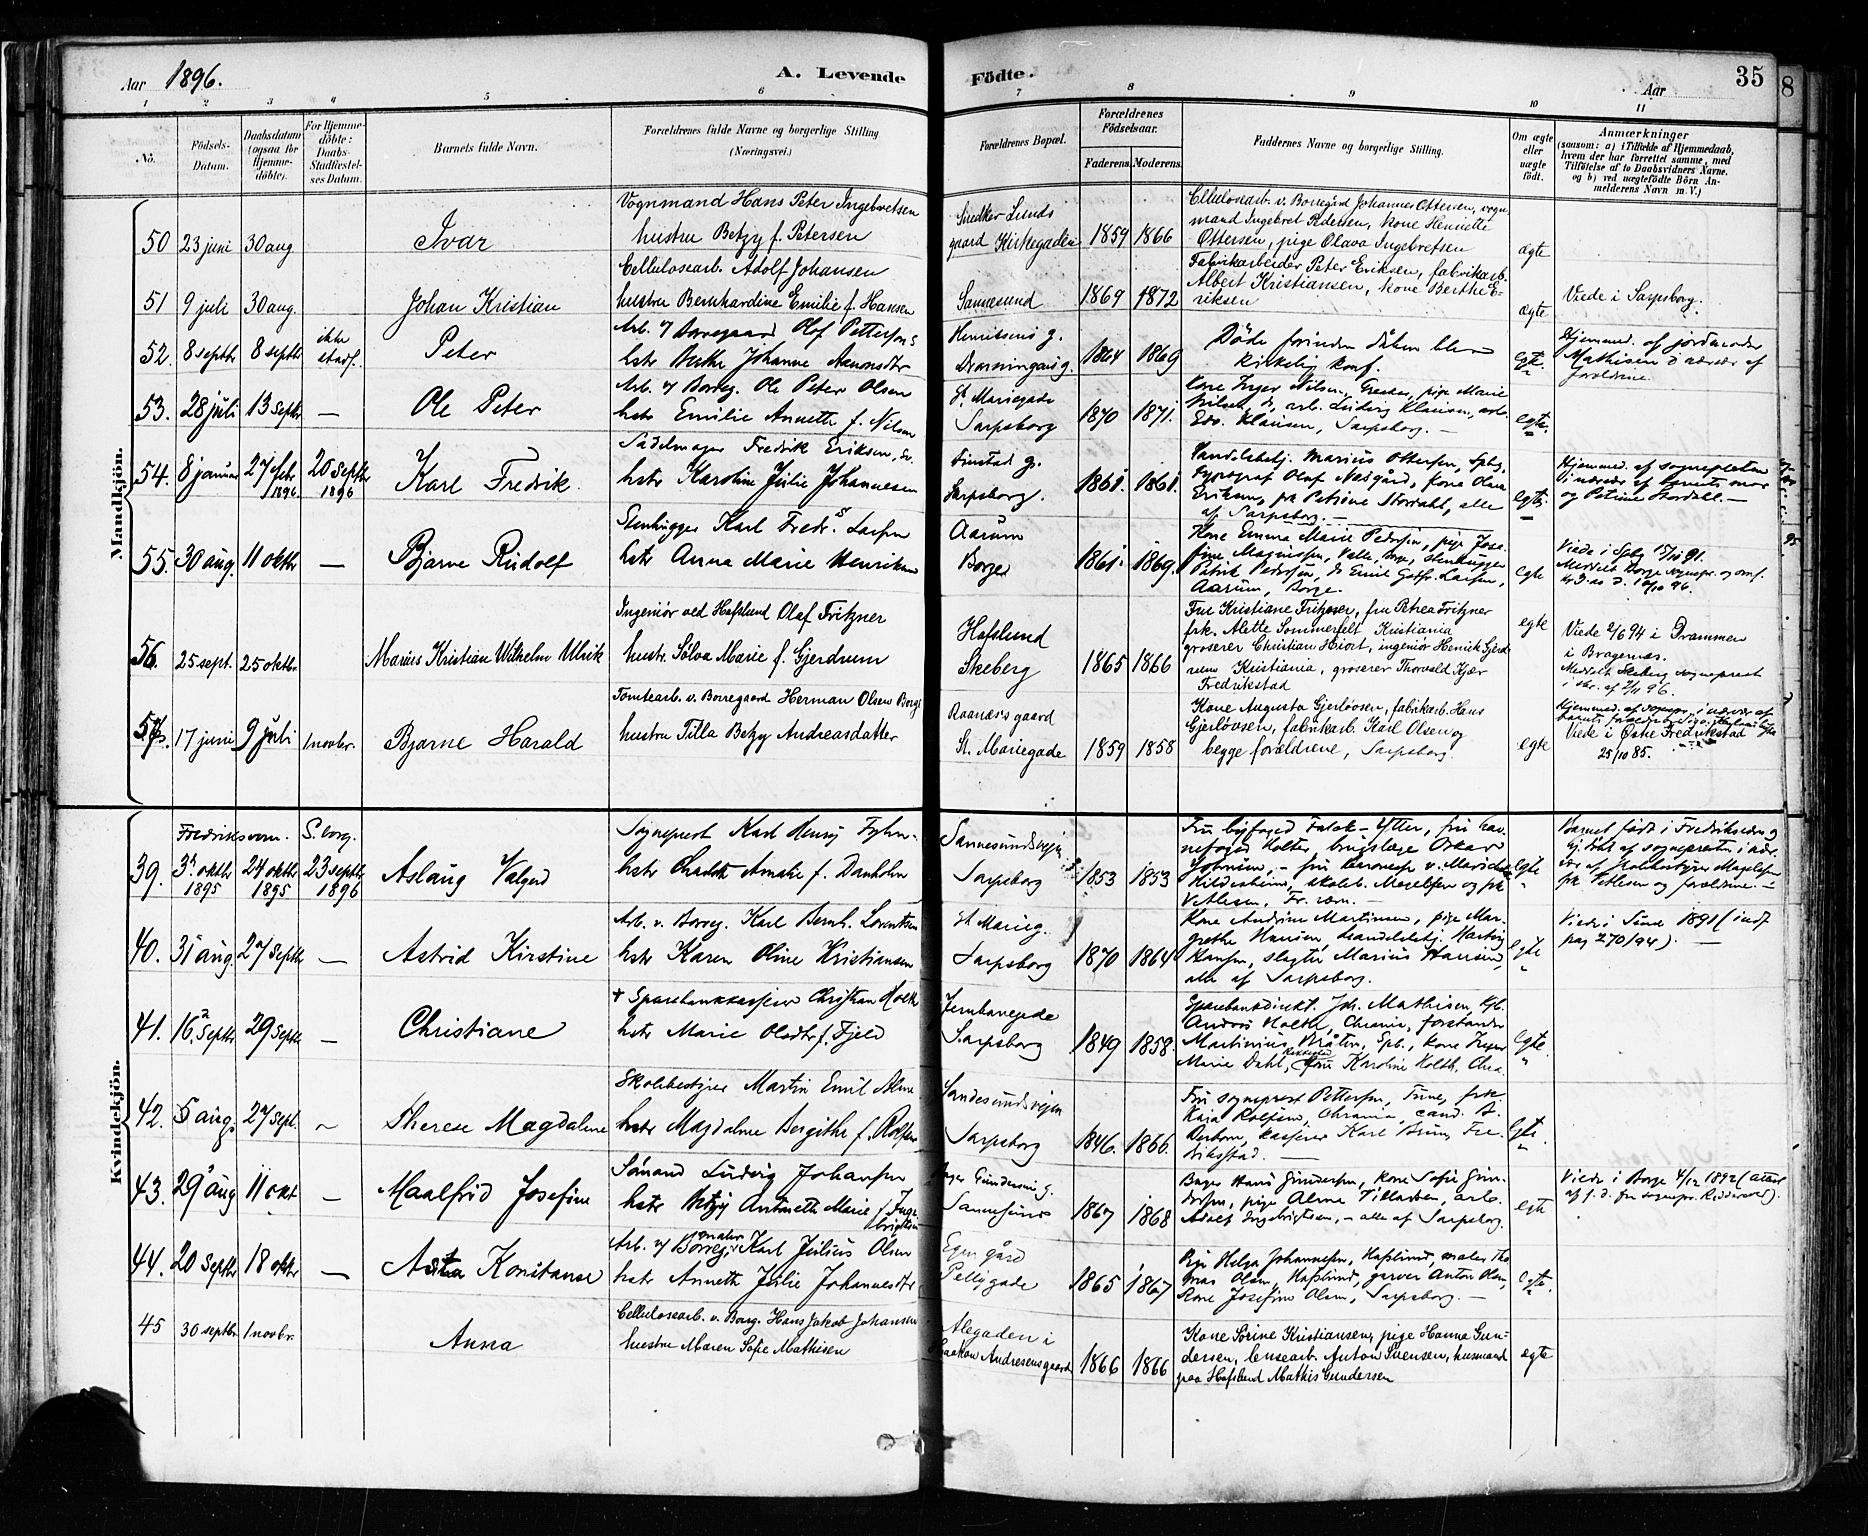 Aar 1896.
A. Levende
Födte.
Aar
35
8
1 2 3 4 5 6 7 8 9 10 11
No.
Födsels-
Datum.
Daabsdatum
(ogsaa for
Hjemme-
döbte).
For Hjemme-
döbte:
Daabs-
Stadfæstel-
ses Datum.
Barnets fulde Navn.
Forældrenes fulde Navne og borgerlige Stilling
(Næringsvei.)
Forældrenes Bopæl.
Forældrenes
Födselsaar.
Faderens.
Moderens.
Faddernes Navne og borgerlige Stilling.
Om ægte
eller
uægte
födt.
Anmærkninger
(saasom: a) i Tilfælde af Hjemmedaab,
hvem der har forrettet samme, med
Tilföielse af to Daabsvidners Navne.
og b) ved uægtefödte Börn An-
melderens Navn m. V.)
Mandkjön.
50 23 juni 30 aug Ivar
Vognmand Hans Peter Ingebretsen
hustru Betzy f. Petersen
Snedker Lunds
gaard Kirkegaden
1859 1866
Cellulosearb. v. Borregård Johannes Ottersen, vogn
mand Ingebret Pedersen, kone Henriette
Ottersen, pige Olava Ingebretsen
ægte
51 9 juli 30 aug. Johan Kristian
Cellulosearb. Adolf Johansen
hustru Bernhardine Emilie f. Hansen
Sannesund
1869 1872
Fabrikarbeider Peter Eriksen, fabrikarb.
Albert Kristiansen, kone Berthe E-
riksen
ægte
Viede i Sarpsborg.
52. 8 septbr 8 septbr
ikke
stadf.
Peter
Arb. v/ Borregaard Olof Petterson
hstr Johanne
Henriksens g.
Dronningensg.
1864 1869
Döde forinden dåben blev
kirkelig konf.
egte.
Hjemmed. af jordmoder
Mathisen i nærvær af
forældrene.
53. 28 juli 13 septbr — Ole Peter
Arb. v/ Borreg. Ole Peter Olsen
hstr Emilie Annette f. Nilsen
St. Mariegade
Sarpsborg
1870 1871.
Kone Inger Nilsen, pige Marie
Nilsen, arb. Ludvig Klausen, arb.
Edv. Klausen, Sarpsborg. —
egte.
54. 8 januar 27 febr
1896
20 septbr
1896
Karl Fredrik.
Sadelmager Fredrik Eriksen,
hstr Karoline Julie Johannesen
Sarpsborg.
1861. 1861.
Handelsbetj. Marius Ottersen, Spbg,
typograf Olaf Næsgård, kone Olava
Eriksen, Petrine Stordahl, alle
af Sarpsborg.
egte.
Hjemmed. af sognepresten
i nærvær af barnets mor
og Petrine Stordahl. —
55. 30 aug. 11 oktbr — Bjarne Rudolf
Stenhugger Karl Fredr. Larsen
hstr Anna Marie Henriksen
Aarum
Borge
1861. 1869.
Kone Emma Marie Pedersen, pige Jose-
fine Magnussen, Valle, Borge, stenhugger
Patrik Pedersen, do Emil Gotfr. Larsen,
Aarum, Borge.
egte
Viede i Spbg 15/10 91.
Meddelt Borge sognepr.
96.
56. 25 sept. 25 oktbr Marius Kristian Wilhelm Ulrik
Ingeniör ved Hafslund Olaf Fritzner
hustr. Sölva Marie f. Gjerdrum
Hafslund
Skeberg
1865 1866
Fru Kristiane Fritzner, fru Petrea Fritzner
frk. Alette Sommerfelt Kristiania
grosserer Christian Hiort, ingeniör Henrik Gjerd
rum Kristiania, grosserer Thorvald Kjær
Fredrikstad
egte
Viede 2/6 94 i Drammen
i Bragernæs.
Meddelt Skeberg sogneprest
i skr. af 2/11 96.
57. 17 juni 9 juli 1 novbr. Bjarne Harald
Tomtearb. v. Borregaard Herman Olsen Borg
hustru Tilla Betzy Andreasdatter
Raanæs's gaard
St. Mariegade
1859 1858
Kone Augusta Gjerlövsen, fabrikarb. Hans
Gjerlövsen, fabrikarb. Karl Olsen og
begge forældrene, Sarpsborg.
egte
Hjemmed. af sognepr. i nærvær af
Viede i Östre Fredrikstad
25/10 85.
Kvindekjön.
Fredriksværn.
S.borg.
39. 3 oktbr
1895
24 oktbr
1895
23 septbr
1896
Aslaug Valgerd
Sogneprest Karl Henrij Fyhn.
hstr Amalie f. Danholm
Sannesundsvejen
Sarpsborg
1853 1853
Fru byfoged Falck-Ytter, fru
Holter, brugslæge Oskar
Vetlesen, Fr.værn. —
egte
Barnet födt i Fredriksværn og
hj.döbt af sognepresten i nær-
vær af skolebestyrer Magelssen
frk. Vetlesen og forældrene. —
40. 31 aug. 27 septbr — Astrid Kirstine
Arb. v. Borreg. Karl Bernh. Lorentsen
hstr Karen Oline Kristiansen
St. Marieg.
Sarpsborg
1870 1864
Kone Andrine Martinsen, pige Mar-
grethe Hansen, handelsbetj. Hartvig
Hansen, slagter Marius Hansen,
alle af Sarpsborg.
egte
Viede i 1891 (indf
pag 270/94). —
41. 16. septbr 29 septbr — Christiane
+ Sparebankkasserer Christian Holth
hstr Marie Olsdtr f. Fjeld
Jernbanegade
Sarpsborg
1849 1858.
Sparebankdirekt. Joh. Mathisen, Spb.
Holth, Chrania, forstander
Martinius Bråten, Spb., kone Inger
Marie Dahl, fru Karoline Holth, Chra.
egte.
42. 5 aug. 27 sept. Therese Magdalene
Skolebestyrer Martin Emil Alme
hstr Magdalene Bergithe f. Rolfsen
Sandesundsvejen
Sarpsborg
1846. 1866.
Fru sogneprest Pettersen, Tune, frk.
Kaja Rolfsen, Chrania, cand.
kasserer Karl Bruu, Fre-
drikstad. —
egte.
43. 29 aug 11 okt — Maalfrid Josefine
Sömand Ludvig Johansen
hstr Betzy Antonette Marie f. Inge-
brigtsen
Bager Gundersens g.
Sannesund
1867 1868
Bager Hans Gundersen, kone Sofie Gun-
dersen, pige Alma Tilladsen, arb.
Adolf Ingebrigtsen, — alle af Sarpsborg.
egte
Viede i Borge 4/12 1892 (attest
af s. d. fra sognepr. Riddervold).
44. 20 septbr 18 oktbr — Asta Konstanse
maler
Arb. v/ Borreg. Karl Julius Olsen
hstr Annette Julie Johannesdtr
Egen gård
Pellygade
1865 1867
Pige Helga Johannesen, Hafslund, maler Tho-
mas Olsen, Hafslund, garver Anton Olsen,
Kone Josefine Olsen, Sarpsborg. —
egte.
45 30 septbr 1 novbr. Anna
Cellulosearb. v. Borg. Hans Jakob Johansen
hustru Maren Sofie Mathisen
Alegaden i
Haakon Andresens gaard
1866 1866
Kone Sörine Kristiansen, pige Hanna Gun-
dersen, lensearb. Anton Svensen, husmand
paa Hafslund Mathis Gundersen
ægte